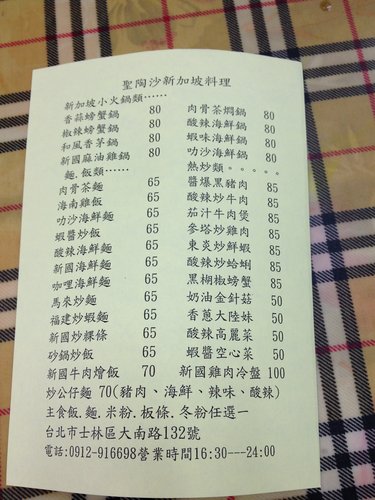 聖陶沙新加坡料理
新加坡小火鍋類……
香蒜螃蟹鍋 80
椒辣螃蟹鍋 80
和風香茅鍋 80
新國麻油雞鍋 80
麵.飯類……
肉骨茶麵 65
海南雞飯 65
叻沙海鮮麵 65
蝦醬炒飯 65
酸辣海鮮麵 65
新國海鮮麵 65
咖哩海鮮麵 65
馬來炒麵 65
福建炒蝦麵 65
新國炒粿條 65
砂鍋炒飯 65
新國牛肉燴飯 70
肉骨茶燜鍋 80
酸辣海鮮鍋 80
蝦味海鮮鍋 80
叻沙海鮮鍋 80
熱炒類。。。。。
醬爆黑豬肉 85
酸辣炒牛肉 85
茄汁牛肉煲 85
麥塔炒雞肉 85
東炎炒鮮蝦 85
酸辣炒蛤蜊 85
黑椒椒螃蟹 85
奶油金針菇 50
香蔥大陸妹 50
酸辣高麗菜 50
蝦醬空心菜 50
新國雞肉冷盤 100
炒公仔麵 70(豬肉、海鮮、辣味、酸辣)
主食飯.麵.米粉.板條.冬粉任選一
台北市士林區大南路132號
電話:0912-916698營業時間16:30---24:00